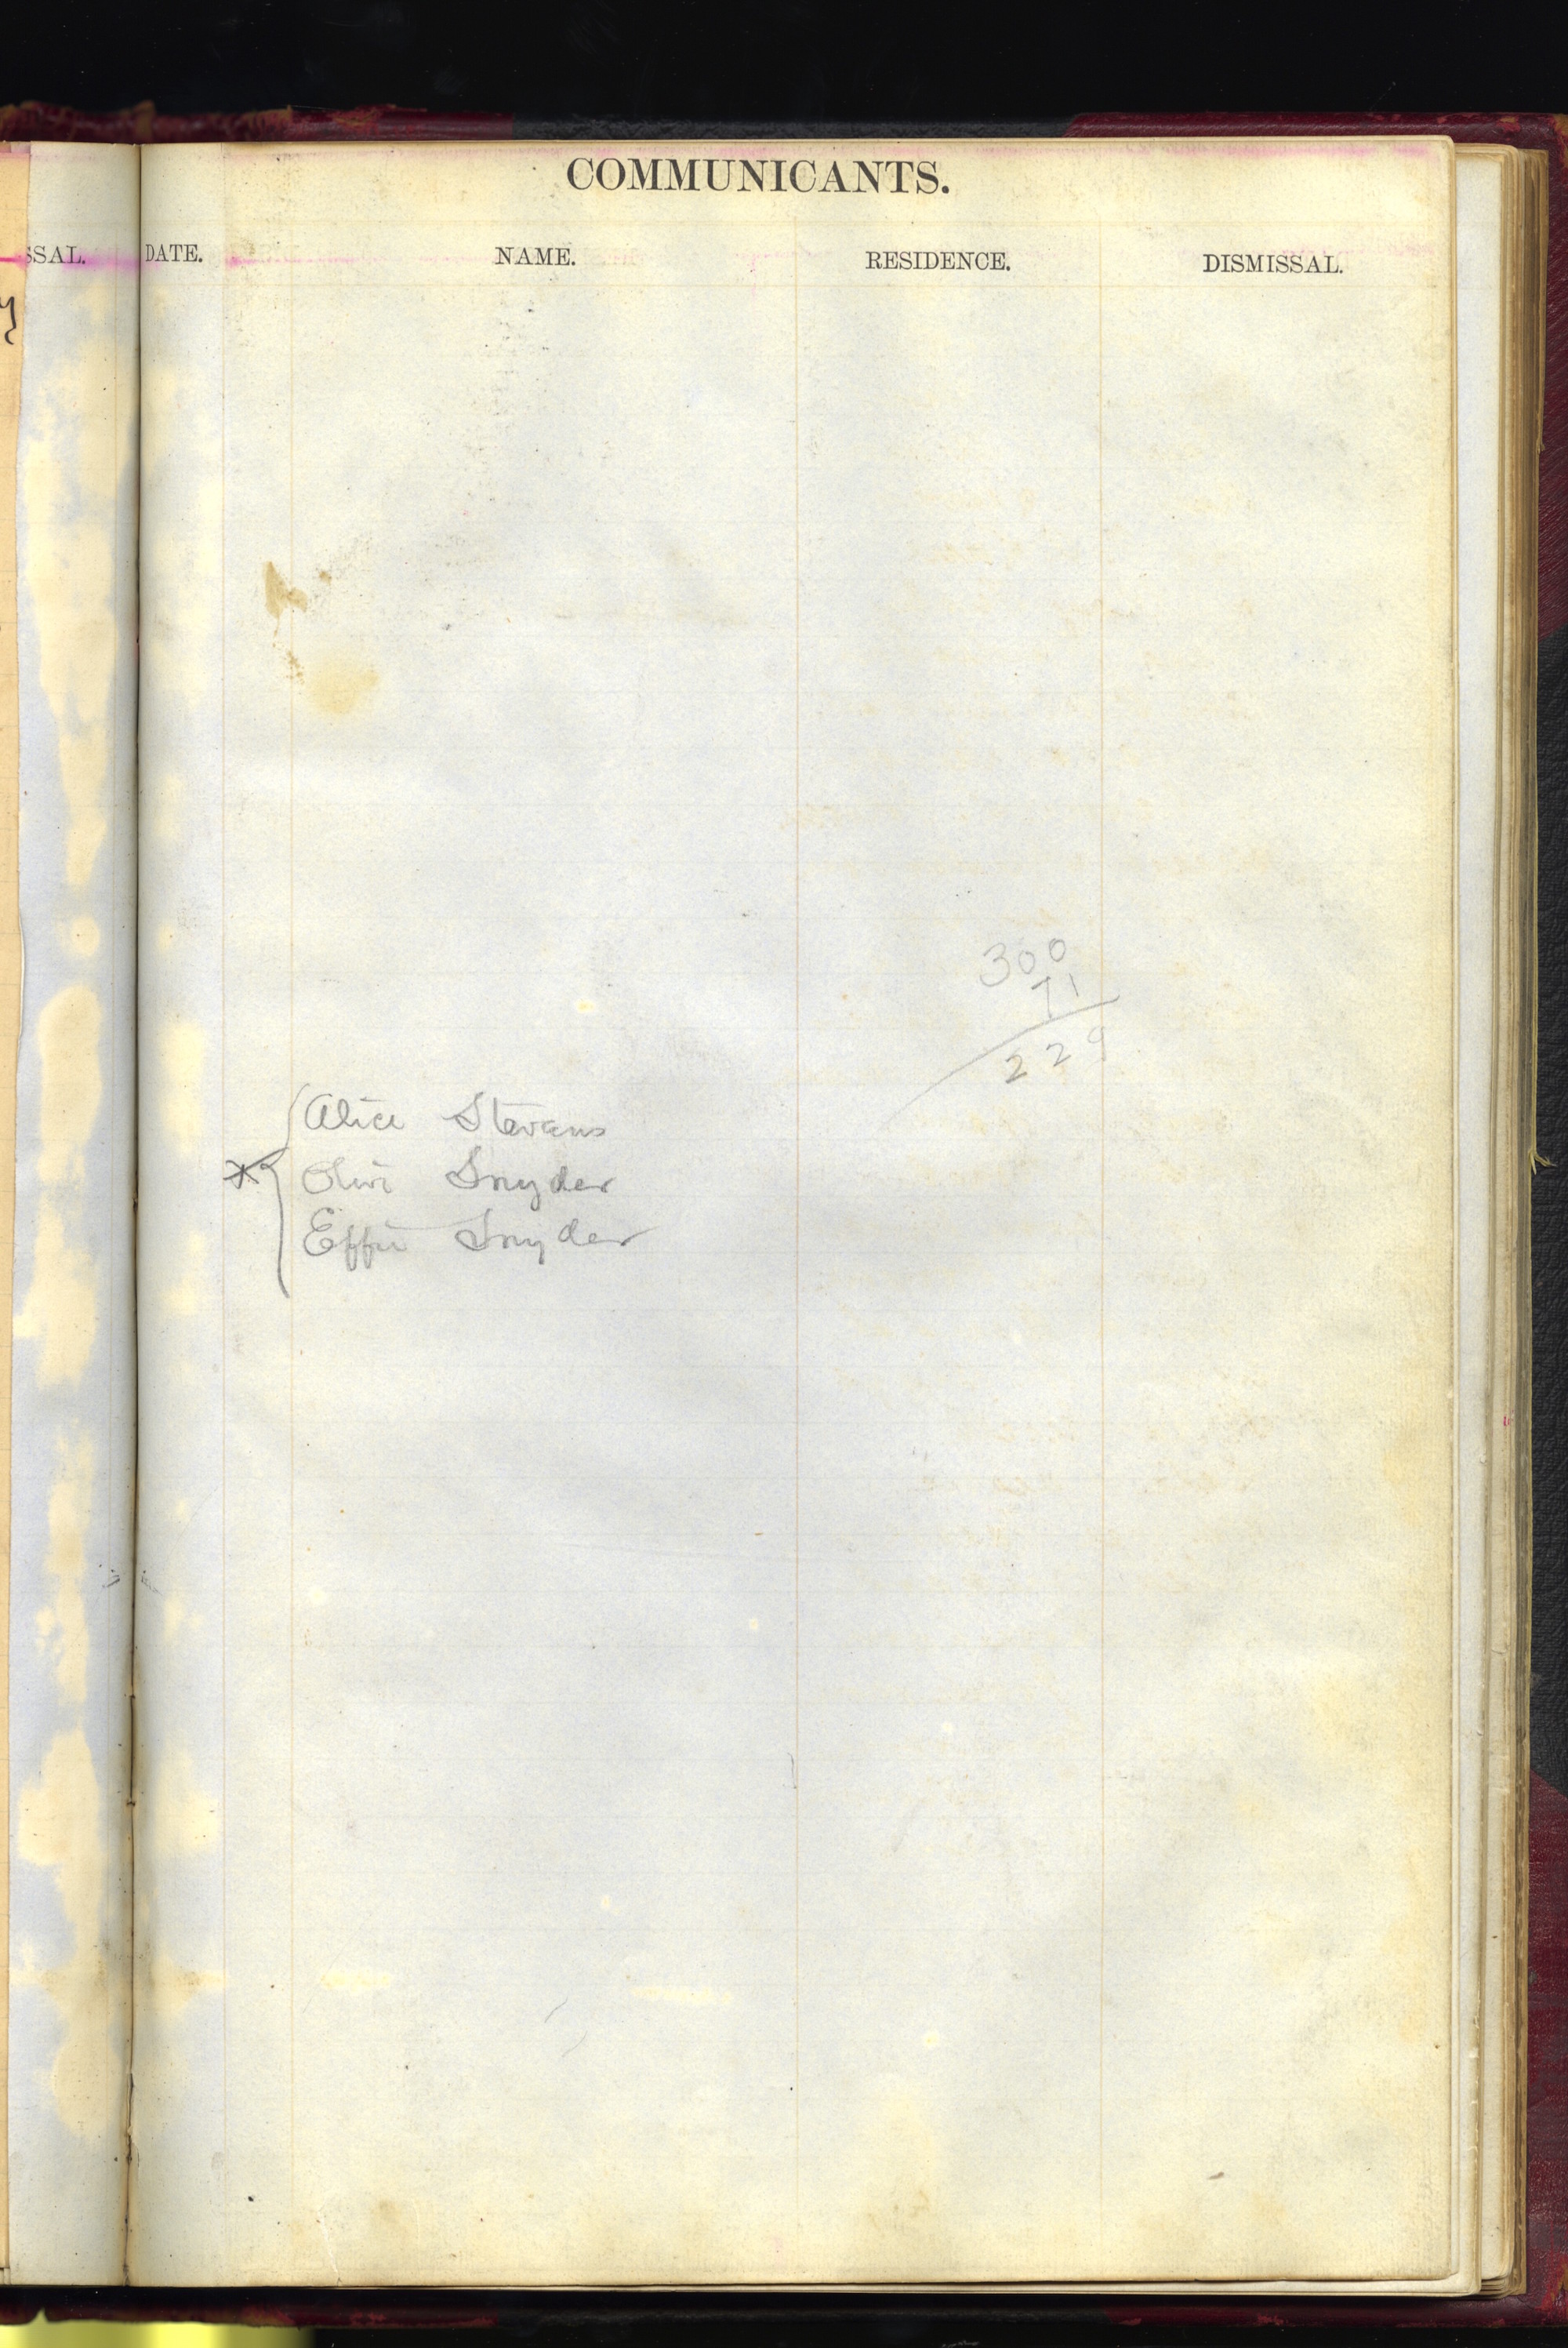 COMMUNICANTS.
SSAL. DATE. NAME. RESIDENCE. DISMISSAL.
300
71
229
Alice Stevens
Olive Snyder
Effie Snyder